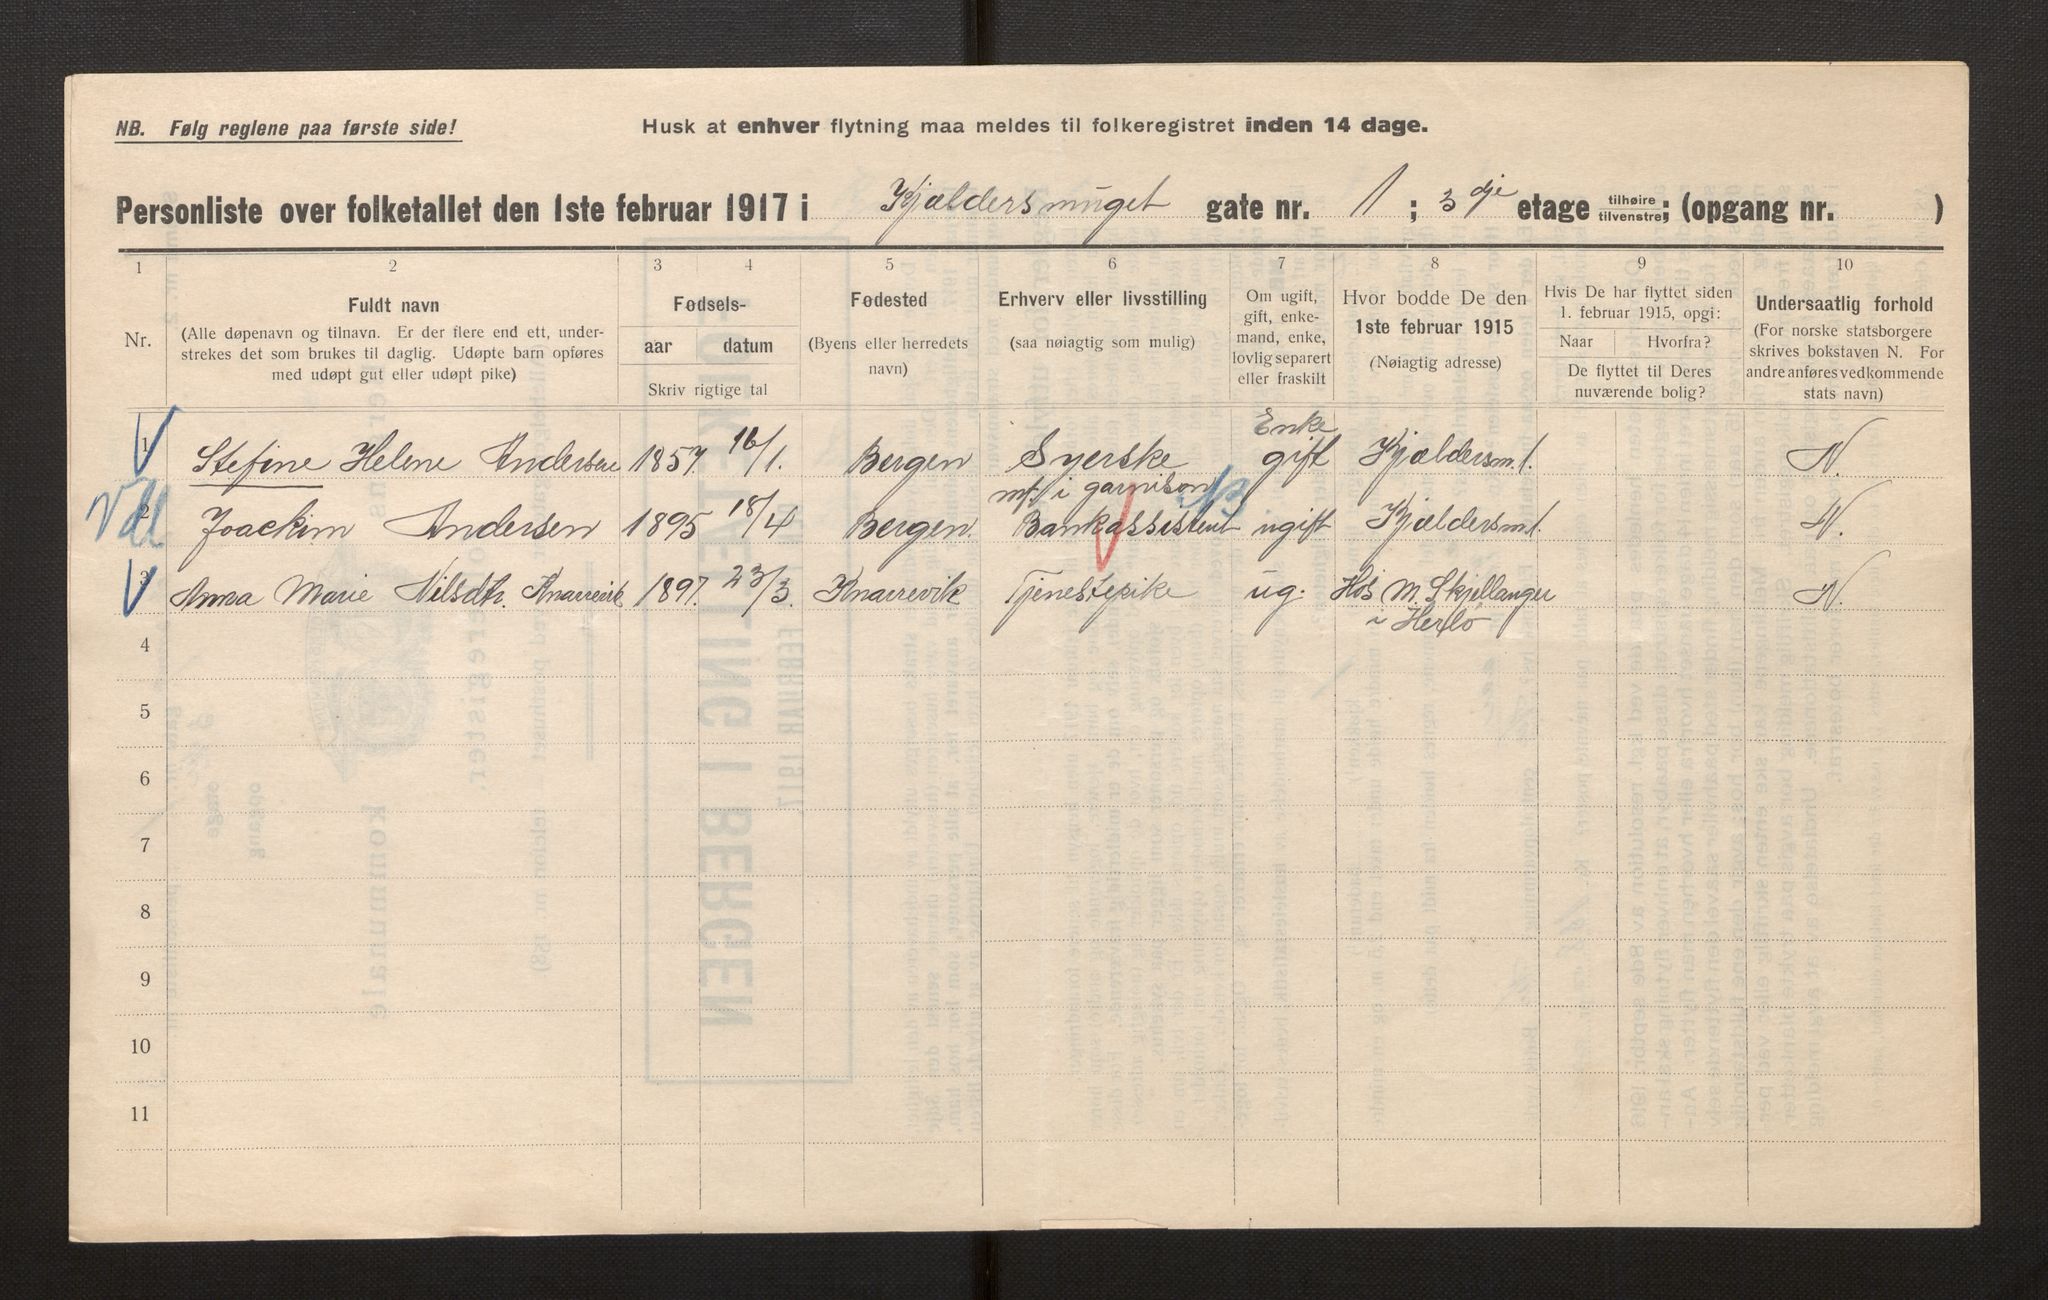 NB. Følg reglene paa første side!
Husk at enhver flytning maa meldes til folkeregistret inden 14 dage.
Personliste over folketallet den 1ste februar 1917 i Kjældersmuget gate nr. 1; 3dje etage tilhøire tilvenstre; (opgang nr. )
1 2 3 4 5 6 7 8 9 10
Nr.
Fuldt navn
(Alle døpenavn og tilnavn. Er der flere end ett, under-
strekes det som brukes til daglig. Udøpte barn opføres
med udøpt gut eller udøpt pike)
Fødsels-
aar datum
Skriv rigtige tal
Fødested
(Byens eller herredets
navn)
Erhverv eller livsstilling
(saa nøiagtig som mulig)
Om ugift,
gift, enke-
mand, enke,
lovlig separert
eller fraskilt
Hvor bodde De den
1ste februar 1915
(Nøiagtig adresse)
Hvis De har flyttet siden
1. februar 1915, opgi:
Naar Hvorfra?
De flyttet til Deres
nuværende bolig?
Undersaatlig forhold
(For norske statsborgere
skrives bokstaven N. For
andre anføres vedkommende
stats navn)
Enke
1 Stefine Helene Andersen 1857. 16/1. Bergen Syerske gift Kjældersm. 1. N.
mf. i garnison
2 Joachim Andersen 1895 18/4 Bergen. Bankassistent ugift Kjældersm 1. N.
3 Anna Marie Nilsdtr. Knarrevik 1897. 23/3. Knarrevik Tjenestepike ug. Hos M. Skjellanger
i Herlø N.
4
5
6
7
8
9
10
11